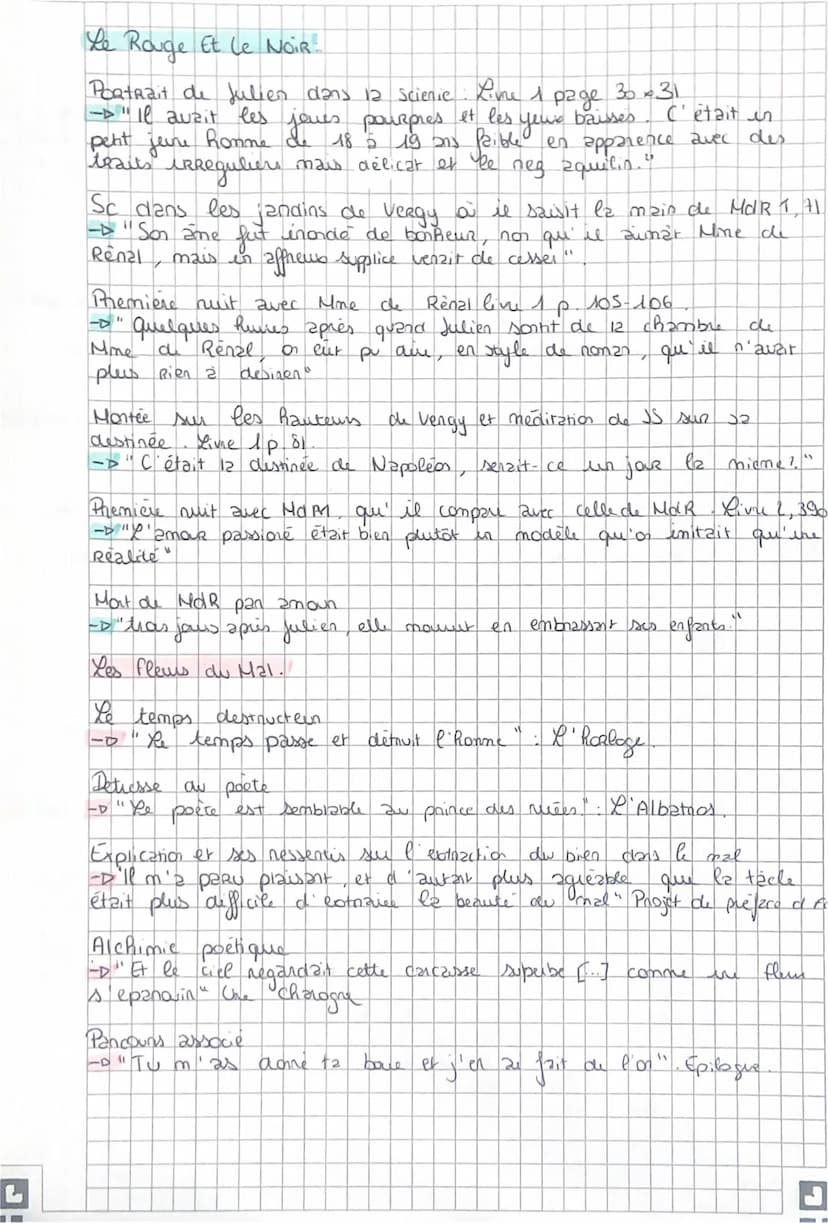 Le Rouge Et Le Noir.
Portrait de Julien dans la scierie : Livre 1 page 30-31
→ "Il avait les joues pourpres et les yeux baissés. C'était un
petit jeune homme de 18 à 19 ans faible en apparence avec des
traits irreguliers mais délicat et le nez aquilin."
Sc dans les jardins de Vergy où il saisit la main de MdR 1, 71
→ "Son âme fut inondé de bonheur, non qu'il aimât Mme de
Rênal, mais un affreux supplice venait de cesser".
Première nuit avec Mme de Rênal livre 1 p. 105-106.
→ "Quelques heures après quand Julien sortit de la chambre de
Mme de Rênal, on eût pu dire, en style de roman, qu'il n'avait
plus rien à desirer"
Montée sur les hauteurs de Vergy et méditation de JS sur sa
destinée. Livre 1 p. 81.
→ "C'était la destinée de Napoléon, serait-ce un jour la mienne?"
Première nuit avec MdM, qu'il compare avec celle de MdR. Livre 2, 390
→ "L'amour passioné était bien plutôt un modèle qu'on imitait qu'une
Réalité"
Mort de MdR par amour
→ "trois jours après Julien, elle mourut en embrassant ses enfants."
Les fleurs du Mal.
Le temps destructeur
→ "Le temps passe et détruit l'homme" : L'horloge.
Détresse du poète
→ "Le poète est semblable au prince des nuées." : L'Albatros.
Explication et ses ressentis sur l'extraction du bien dans le mal
→ "Il m'a paru plaisant, et d'autant plus agréable que la tâche
était plus difficile d'extraire la beauté du mal" Projet de préface d
Alchimie poétique
→ "Et le ciel regardait cette carcasse superbe [...] comme une fleur
s'epanouir" Une charogne
Parcours associé
→ "Tu m'as donné ta boue et j'en ai fait de l'or". Epilogue.